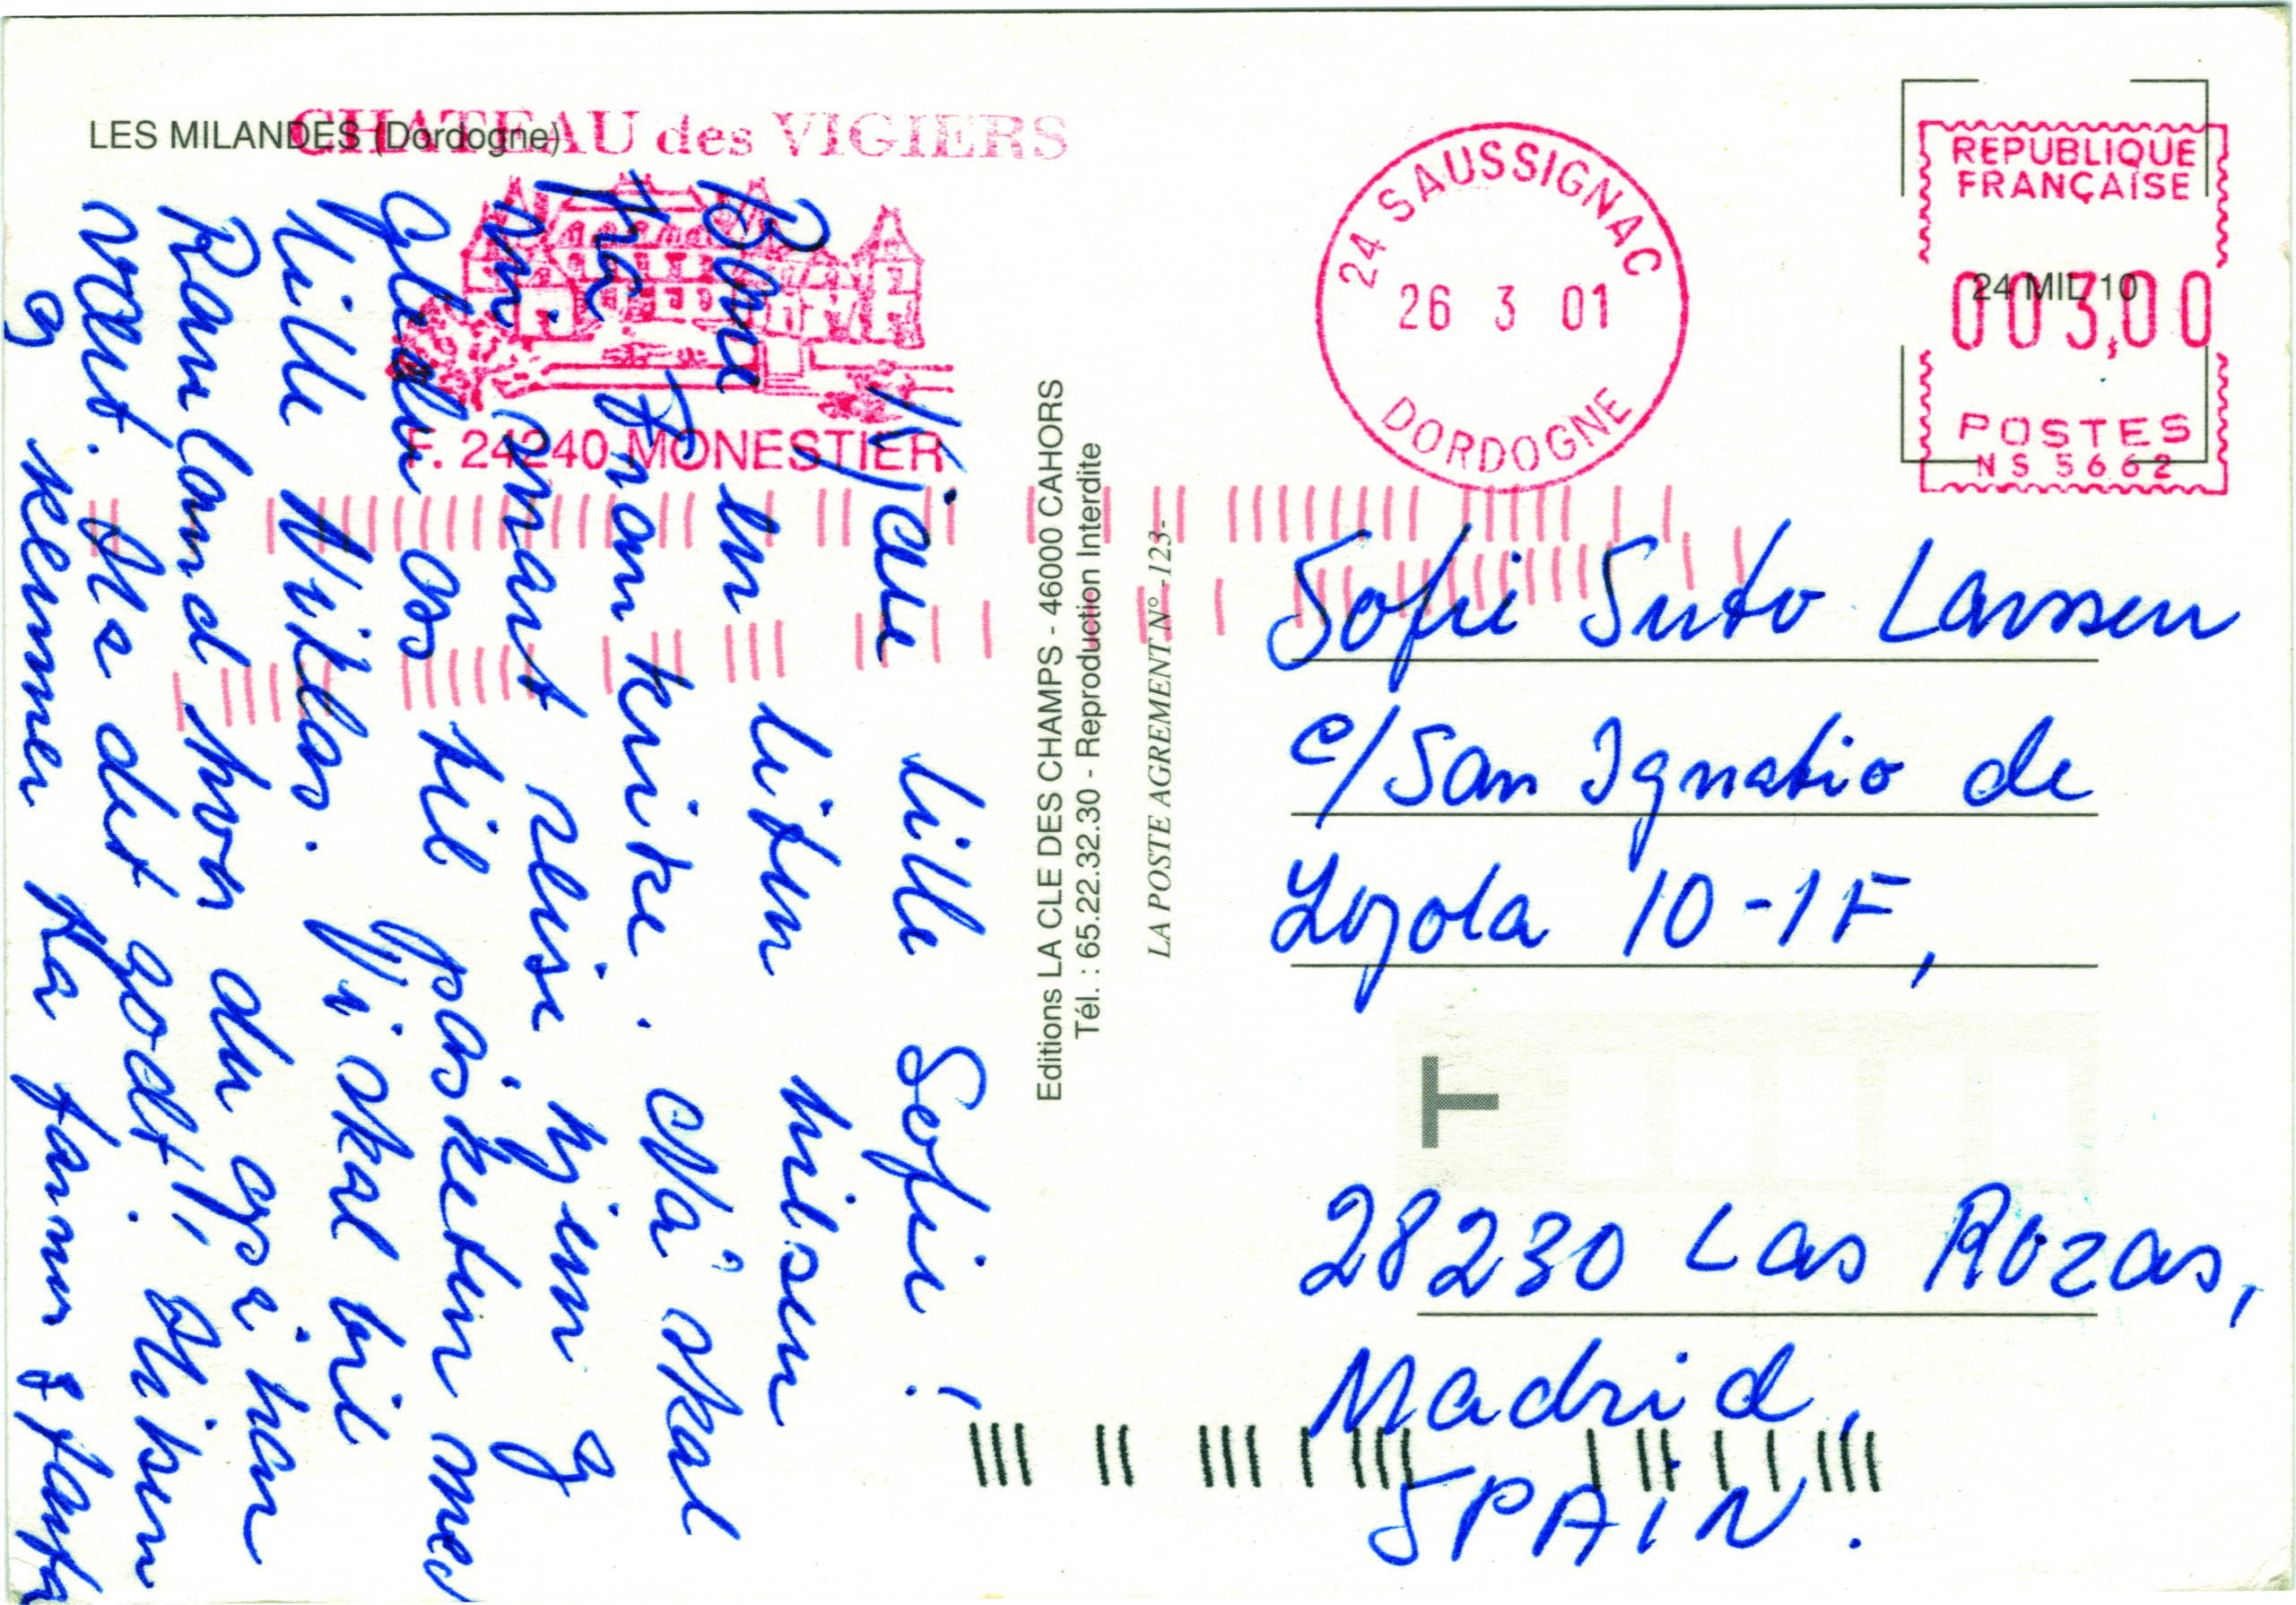 LES MILANDES (Dordogne)
CHATEAU des VIGIERS
F. 24240 MONESTIER
Kjære lille Sofie!
Bare en liten hilsen
fra Frankrike. Nå skal
vi snart reise hjem og
gleder oss til påsketur med
lille Niklas. Vi skal til
hvor du også har
vært. Ha det godt! Hilsen
og klemmer fra farmor & farfar
Editions LA CLE DES CHAMPS - 46000 CAHORS
Tél. : 65.22.32.30 - Reproduction Interdite
LA POSTE AGREMENT N° -123-
24 SAUSSIGNAC
26 3 01
DORDOGNE
REPUBLIQUE
FRANÇAISE
24 MIL 10
003,00
POSTES
NS 5662
Sofie Suto Larssen
c/San Ignatio de
Loyola 10-1F,
T
28230 Las Rozas,
Madrid,
SPAIN.